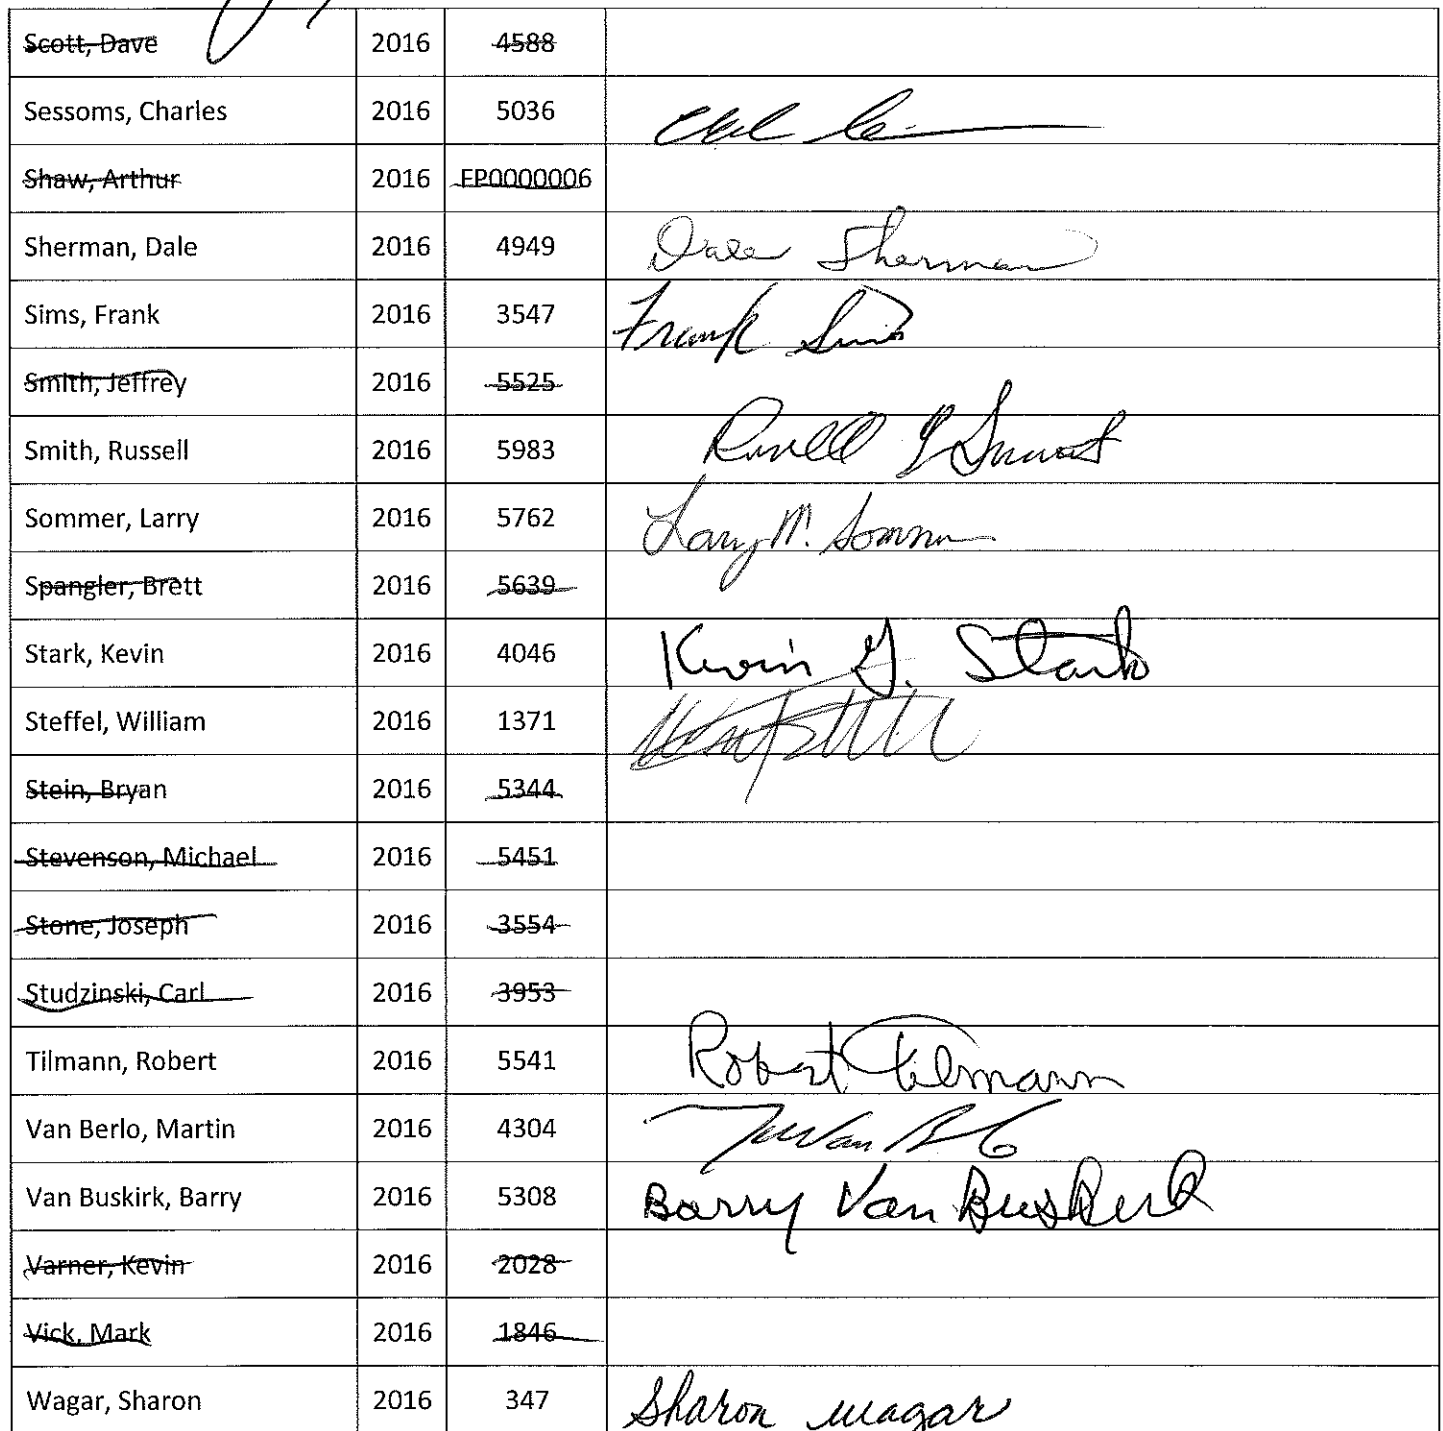 Scott, Dave 2016 4588
Sessoms, Charles 2016 5036
Shaw, Arthur 2016 EP0000006
Sherman, Dale 2016 4949 Dale Sherman
Sims, Frank 2016 3547 Frank Sims
Smith, Jeffrey 2016 5525
Smith, Russell 2016 5983 Russell
Sommer, Larry 2016 5762 Larry M. Sommer
Spangler, Brett 2016 5639
Stark, Kevin 2016 4046 Kevin G. Stark
Steffel, William 2016 1371
Stein, Bryan 2016 5344
Stevenson, Michael 2016 5451
Stone, Joseph 2016 3554
Studzinski, Carl 2016 3953
Tilmann, Robert 2016 5541 Robert Tilmann
Van Berlo, Martin 2016 4304
Van Buskirk, Barry 2016 5308 Barry Van Buskirk
Varner, Kevin 2016 2028
Vick, Mark 2016 1846
Wagar, Sharon 2016 347 Sharon Wagar